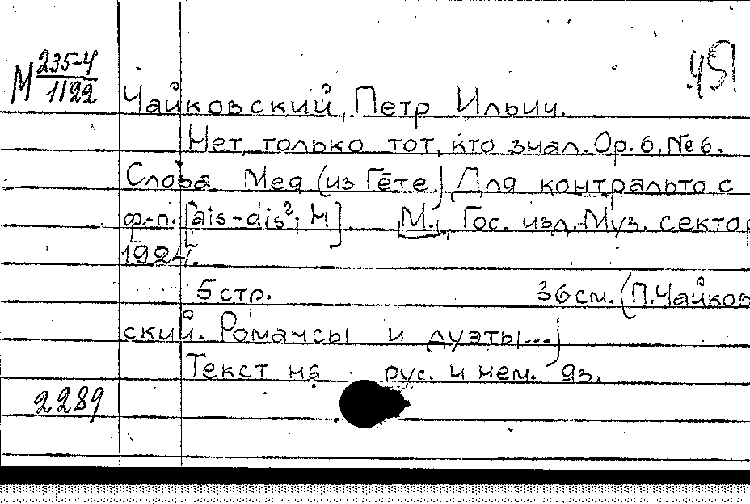 М 235-4
1122
451
Чайковский, Петр Ильич.
Нет, только тот, кто знал. Ор. 6, № 6.
Слова Мея (из Гёте) Для контральто с
ф-п. [ais-dis², н]. [М.], Гос. изд. Муз. сектор
1924.
5 стр. 36 см. (П. Чайков
ский. Романсы и дуэты...)
Текст на рус. и нем. яз.
2289